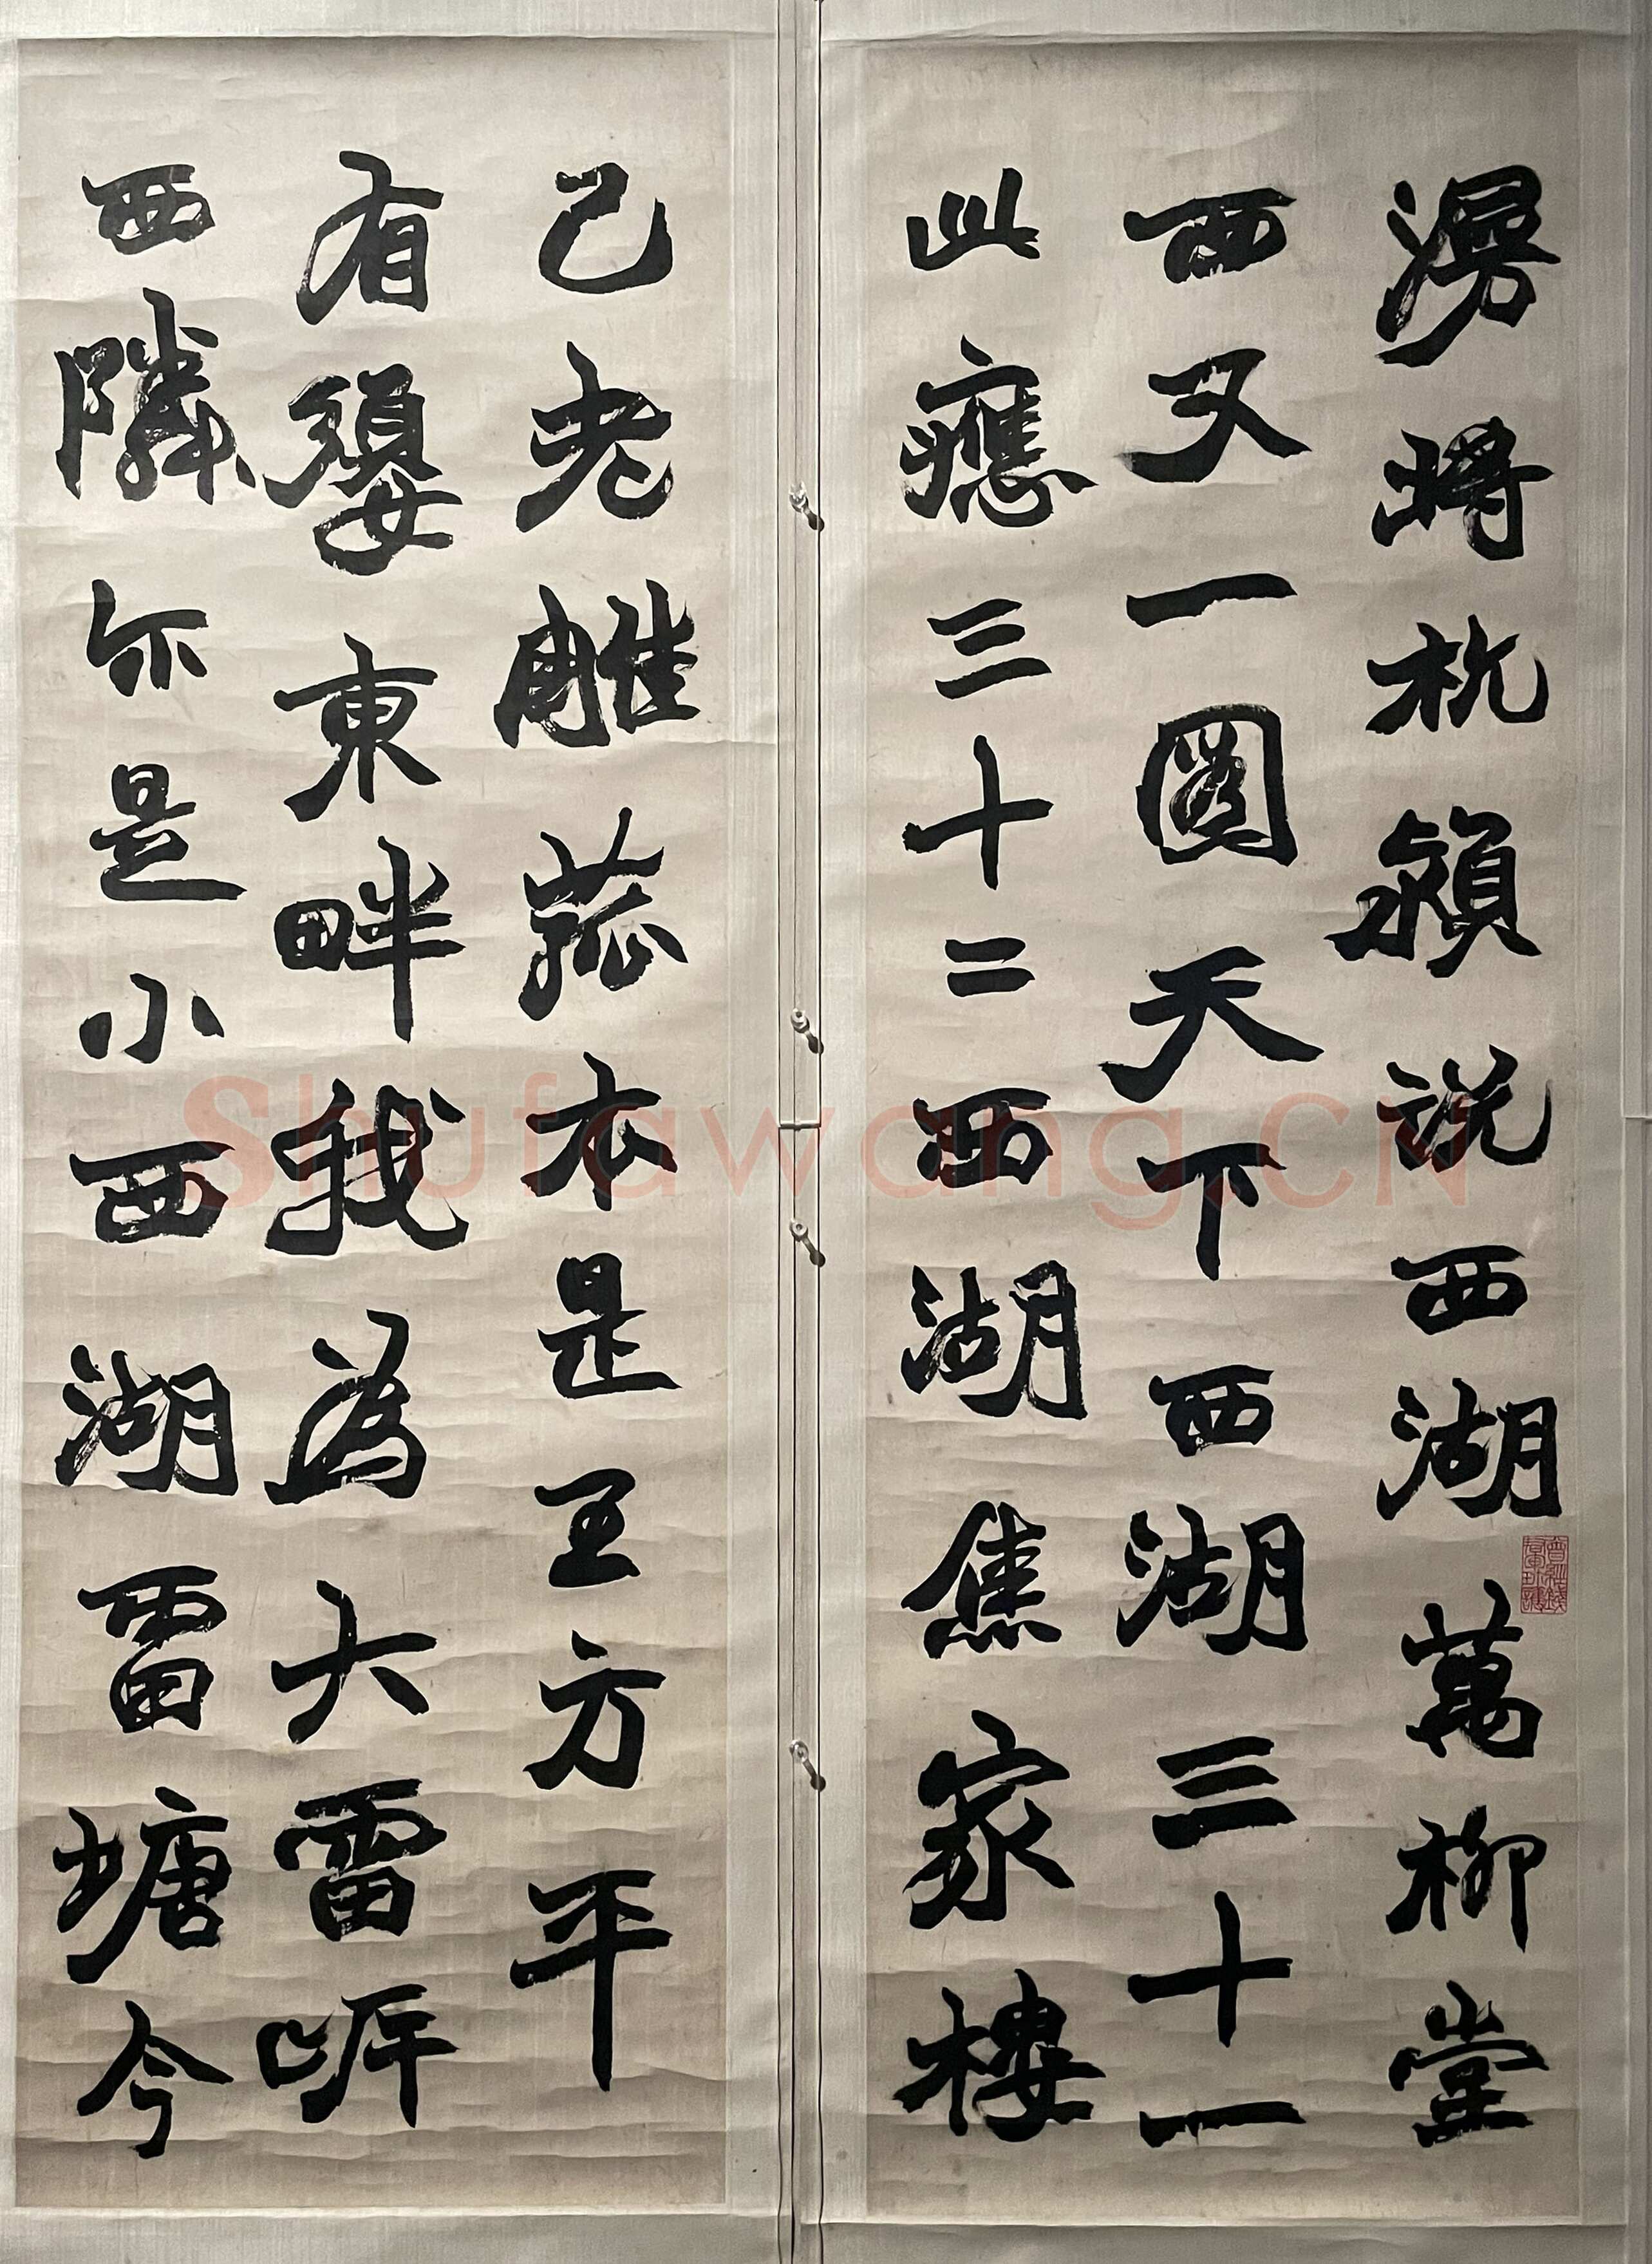 漫將杭潁説西湖萬柳堂
西又一圖天下西湖三十一
此應三十二西湖焦家樓
已老雕菰本是王方平
有嬃東畔我為大雷呼
西隣亦是小西湖雷塘今
Shufawang.CN